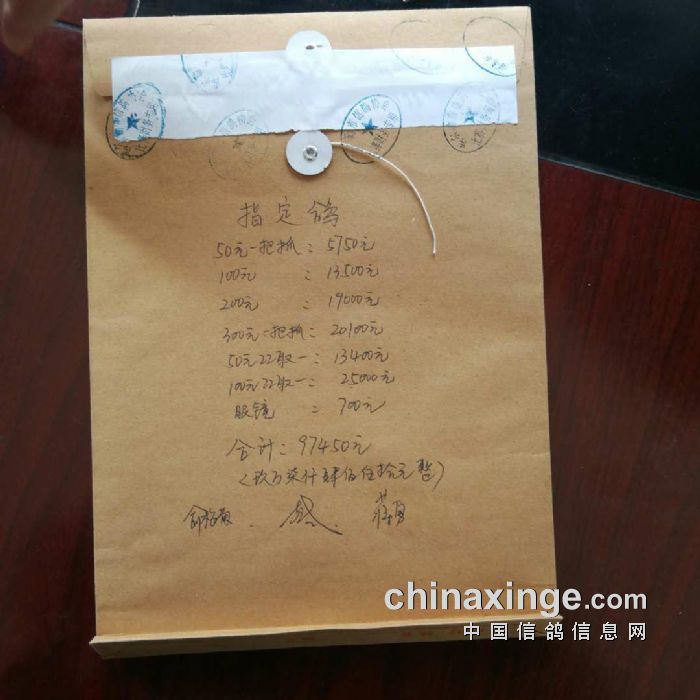 指定鸽
50元一把抓：5750元
100元：13500元
200元：19000元
300元一把抓：20100元
50元22取一：13400元
100元22取一：25000元
眼镜：700元
合计：97450元
(玖万柒仟肆佰伍拾元整)
蒋勇
chinaxinge.com
中国信鸽信息网